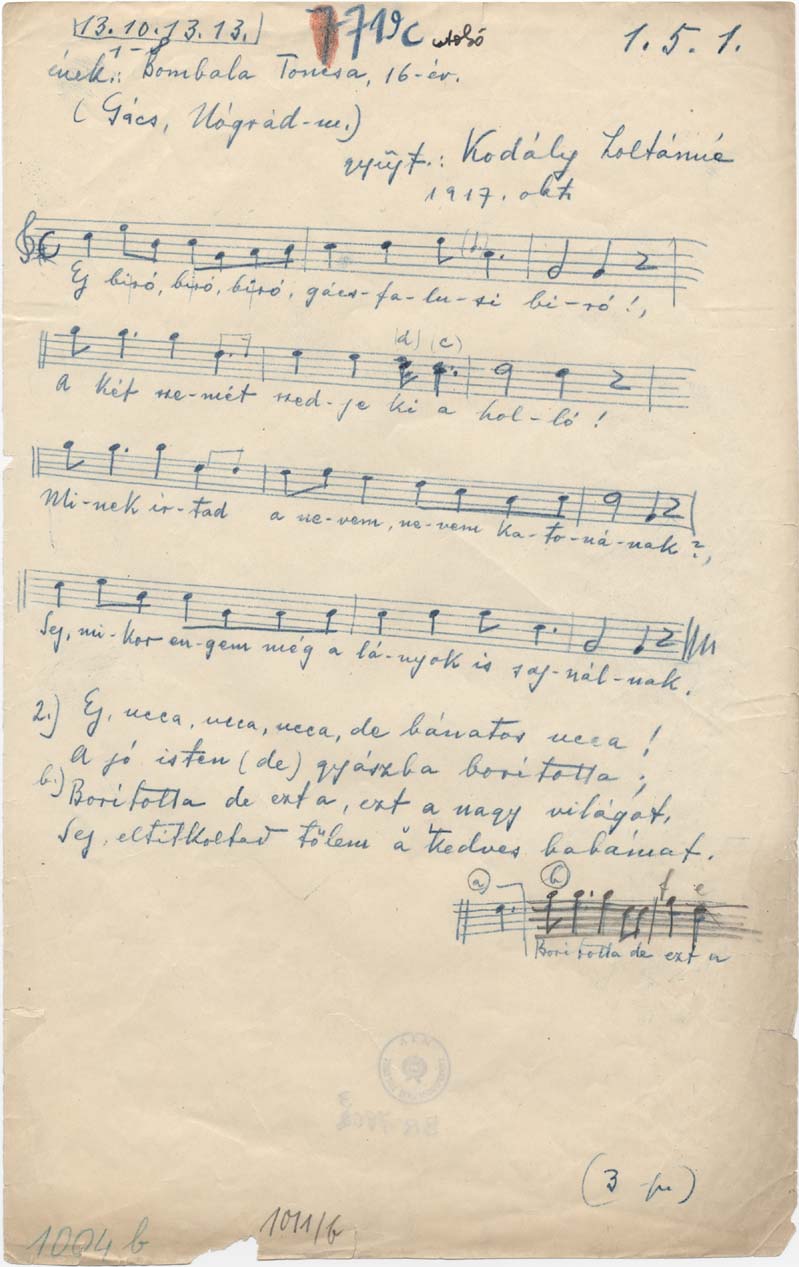 13. 10. 13. 13.
7719c utolsó
1. 5. 1.
ének.: Bombala Toncsa, 16-év.
(Gács, Nógrád-m.)
gyűjt.: Kodály Zoltánné
1917. okt.
Ej biró, biró, biró, gács-fa-lu-si bi-ró!,
(d) (c)
A két sze-mét szed-je ki a hol-ló!
Mi-nek ir-tad a ne-vem, ne-vem ka-to-ná-nak?,
Sej, mi-kor en-gem még a lá-nyok is saj-nál-nak.
2.) Ej, ucca, ucca, ucca, de bánatos ucca!
A jó isten (de) gyászba boritotta;
b.) Boritotta de ezt a, ezt a nagy világot,
Sej, eltitkoltad tőlem a kedves babámat.
a) b) f e
Boritotta de ezt a
(3 )
1004 b
1011/b